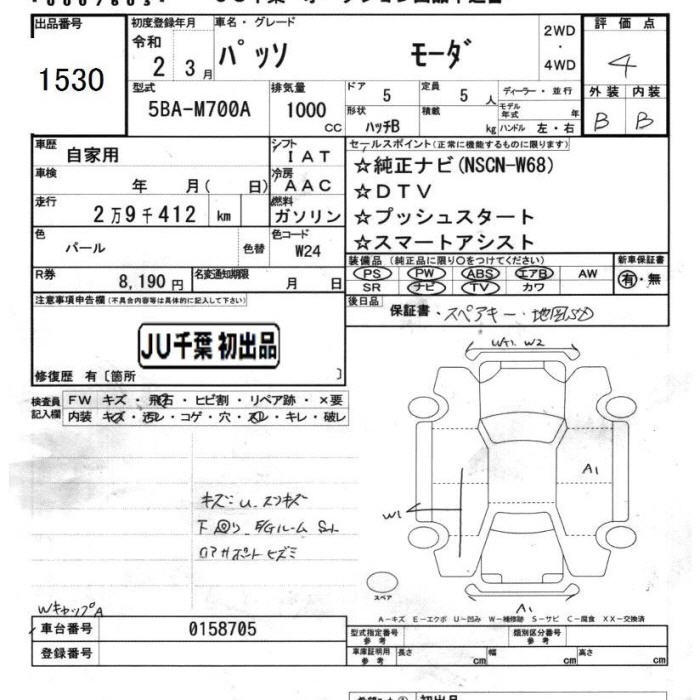 出品番号
1530
初度登録年月
令和
2 3月
車名・グレード
パッソ モーダ
2WD
・
4WD
評価点
4
外装 内装
B B
型式
5BA-M700A
排気量
1000
CC
ドア 5
定員 5 人
ディーラー・並行
形状
ハッチB
積載 kg
モデル年式 年
ハンドル 左・右
車歴 自家用
シフト
IAT
車検 年 月( 日)
冷房
AAC
走行
2万9千412 km
燃料
ガソリン
色
パール
色替
色コード
W24
R券 8,190円
名変通知期限 月 日
セールスポイント(正常に機能するものに限ります)
☆純正ナビ(NSCN-W68)
☆DTV
☆プッシュスタート
☆スマートアシスト
装備品 (純正品に限り○をつけてください)
PS PW ABS エアB AW
SR ナビ TV カワ
新車保証書
有・無
後日品
保証書・スペアキー・地図SD
注意事項申告欄(不具合内容等は具体的に記入して下さい)
JU千葉 初出品
修復歴 有〔箇所 〕
検査員記入欄
FW キズ・飛石・ヒビ割・リペア跡・×要
内装 キズ・汚レ・コゲ・穴・スレ・キレ・破レ
W2
A1
W1
キズミU.スリキズ
下回り.E/Gルーム Sし
スペア
A1
WキャップA
A-キズ E-エクボ U-凹み W-補修跡 S-サビ C-腐食 XX-交換済
車台番号 0158705
登録番号
型式指定番号
参考
類別区分番号
参考
車庫証明用
参考
長さ cm 幅 cm 高さ cm
初出品